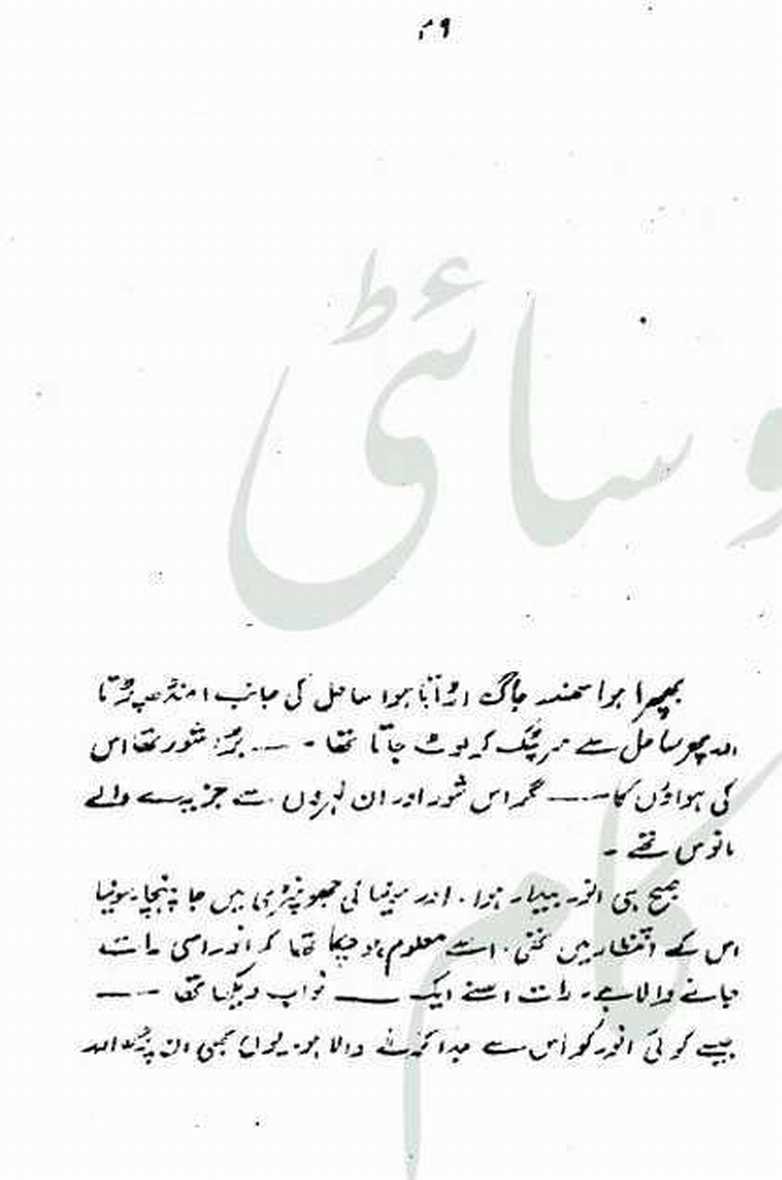 ۴۹
بپھرا ہوا سمندر جاگ اڑاتا ہوا ساحل کی جانب امنڈ پڑتا
اور پھر ساحل سے سر پٹک کر لوٹ جاتا تھا - —— بڑا شور تھا اس
کی ہواؤں کا —— مگر اس شور اور ان لہروں سے جزیرے والے
مانوس تھے -
صبح ہی انور بیدار ہوا . اور سونیا کی جھونپڑی میں جا پہنچا . سونیا
اس کے انتظار میں تھی . اسے معلوم ہو چکا تھا کہ انور اسی رات
جانے والا ہے . رات اسنے ایک —— خواب دیکھا تھا - ——
جیسے کوئی انور کو اس سے جدا کرنے والا ہو . یوں بھی ان پڑھ اور
سائٹی
کام